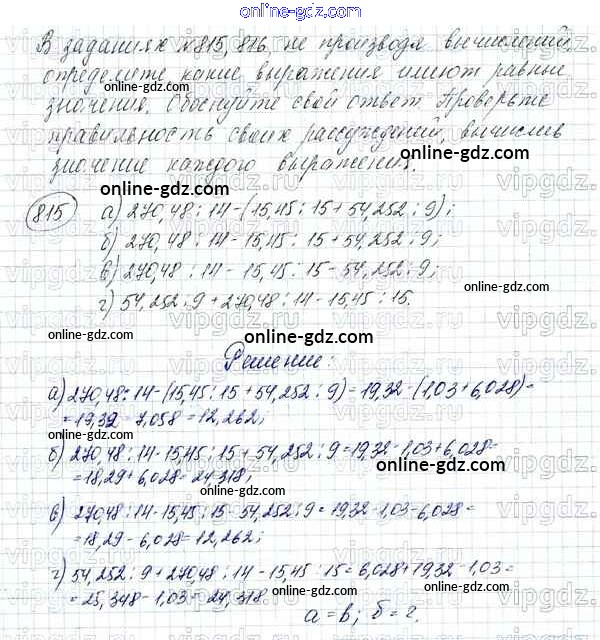 online-gdz.com
В заданиях №815, 816, не производя вычислений,
определите, какие выражения имеют равные
значения. Обоснуйте свой ответ. Проверьте
правильность своих рассуждений, вычислив
значение каждого выражения.
online-gdz.com
online-gdz.com
815 а) 270,48 : 14 - (15,45 : 15 + 54,252 : 9);
online-gdz.com
б) 270,48 : 14 - 15,45 : 15 + 54,252 : 9;
в) 270,48 : 14 - 15,45 : 15 - 54,252 : 9;
г) 54,252 : 9 + 270,48 : 14 - 15,45 : 15.
online-gdz.com
online-gdz.com
online-gdz.com
Решение:
а) 270,48 : 14 - (15,45 : 15 + 54,252 : 9) = 19,32 - (1,03 + 6,028) =
= 19,32 - 7,058 = 12,262;
online-gdz.com
online-gdz.com
б) 270,48 : 14 - 15,45 : 15 + 54,252 : 9 = 19,32 - 1,03 + 6,028 =
= 18,29 + 6,028 = 24,318;
online-gdz.com
online-gdz.com
в) 270,48 : 14 - 15,45 : 15 - 54,252 : 9 = 19,32 - 1,03 - 6,028 =
= 18,29 - 6,028 = 12,262;
online-gdz.com
г) 54,252 : 9 + 270,48 : 14 - 15,45 : 15 = 6,028 + 19,32 - 1,03 =
= 25,348 - 1,03 = 24,318
online-gdz.com
online-gdz.com
а = в; б = г.